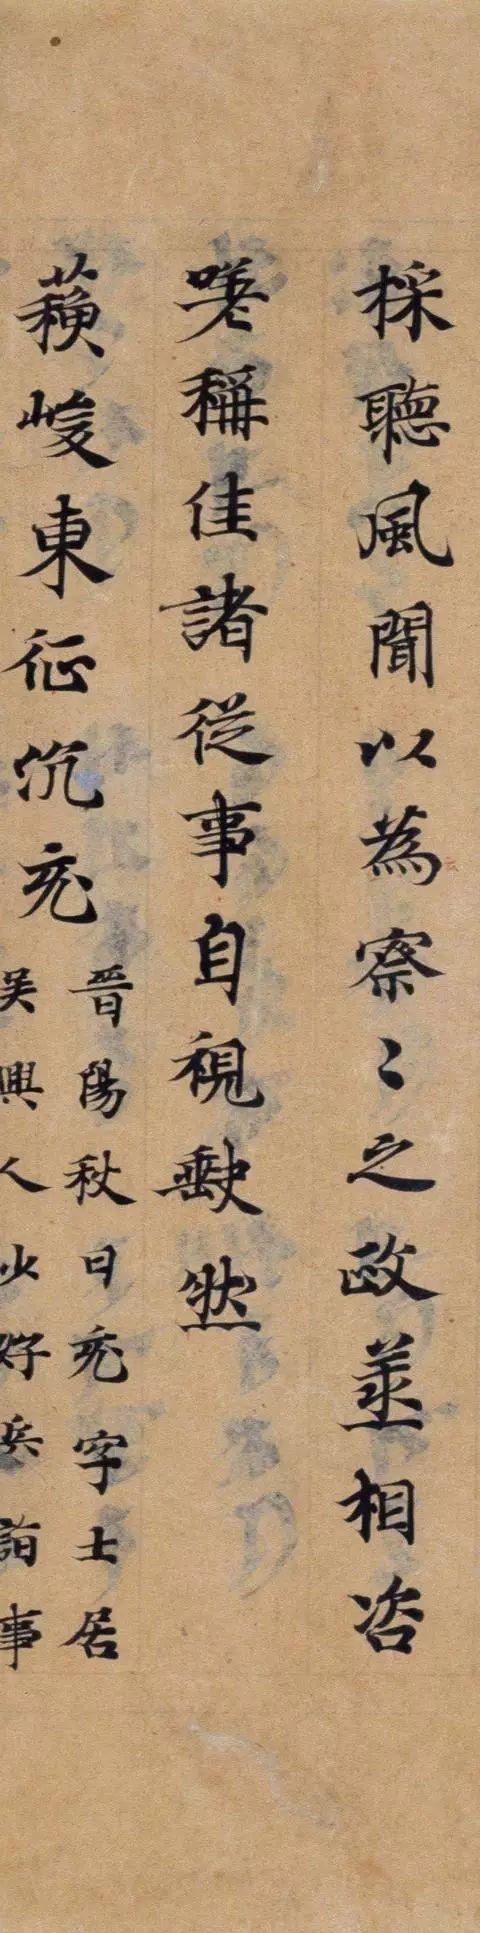 採聽風聞以為察〻之政丞相咨
嗟稱佳諸從事自視缺然
蘇峻東征沉充
晉陽秋曰充字士居
吴興人少好兵諂事